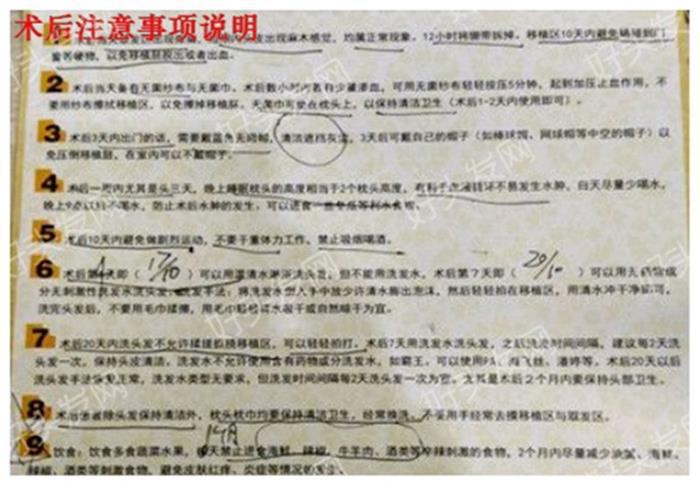 术后注意事项说明
皮出现麻木感觉，均属正常现象。12小时将绷带拆掉。移植区10天内避免碰碰到门
窗等硬物，以免移植胚脱出或者出血。
2 术后当天备有无菌纱布与无菌巾。术后数小时内若有少量渗血，可用无菌纱布轻轻按压5分钟，起到加压止血作用，不
要用纱布擦拭移植区，以免擦掉移植胚。无菌巾可垫在枕头上，以保持清洁卫生（术后1-2天内使用即可）。
3 术后3天内出门的话，需要戴蓝色无纺帽，清洁遮挡灰尘，3天后可戴自己的帽子（如棒球帽、网球帽等中空的帽子）以
免压倒移植胚，在室内可以不戴帽子。
4 术后一周内尤其是头三天，晚上睡眠枕头的高度相当于2个枕头高度，有利于血液循环不易发生水肿，白天尽量少喝水，
晚上9点以后不喝水，防止术后水肿的发生，可以进食一些冬瓜等利水食物。
5 术后10天内避免做剧烈运动，不要干重体力工作，禁止吸烟喝酒。
6 术后第4天即（17/10）可以用温清水淋浴洗头发，但不能用洗发水。术后第7天即（20/10）可以用
分无刺激性洗发水洗头发，洗发手法：将洗发水倒入手中放少许清水膨出泡沫，然后轻轻拍在移植区，用清水冲干净即可，
洗完头发后，不要用毛巾揉擦，用毛巾轻轻将水吸干或自然晾干为宜。
7 术后20天内洗头发不允许揉搓抓挠移植区，可以轻轻拍打。术后7天用洗发水洗头发，之后洗发时间间隔，建议每2天洗
头发一次，保持头皮清洁。洗发水不允许使用含有药物成分洗发水，如霸王，可以使用 海飞丝、潘婷等。术后20天以后
洗头发手法恢复正常，洗发水类型无要求，但洗发时间间隔每2天洗头发一次为宜。尤其是术后2个月内要保持头部卫生。
8 术后患者除头发保持清洁外，枕头枕巾均要保持清洁卫生，经常换洗，不要用手经常去摸移植区与取发区。
1个月
9 饮食：饮食多食蔬菜水果，天禁止进食海鲜、辣椒、牛羊肉、酒类等辛辣刺激的食物，2个月内尽量减少油腻、海鲜、
辣椒、酒类等刺激食物，避免皮肤红痒、炎症等情况的发生。
好头发网